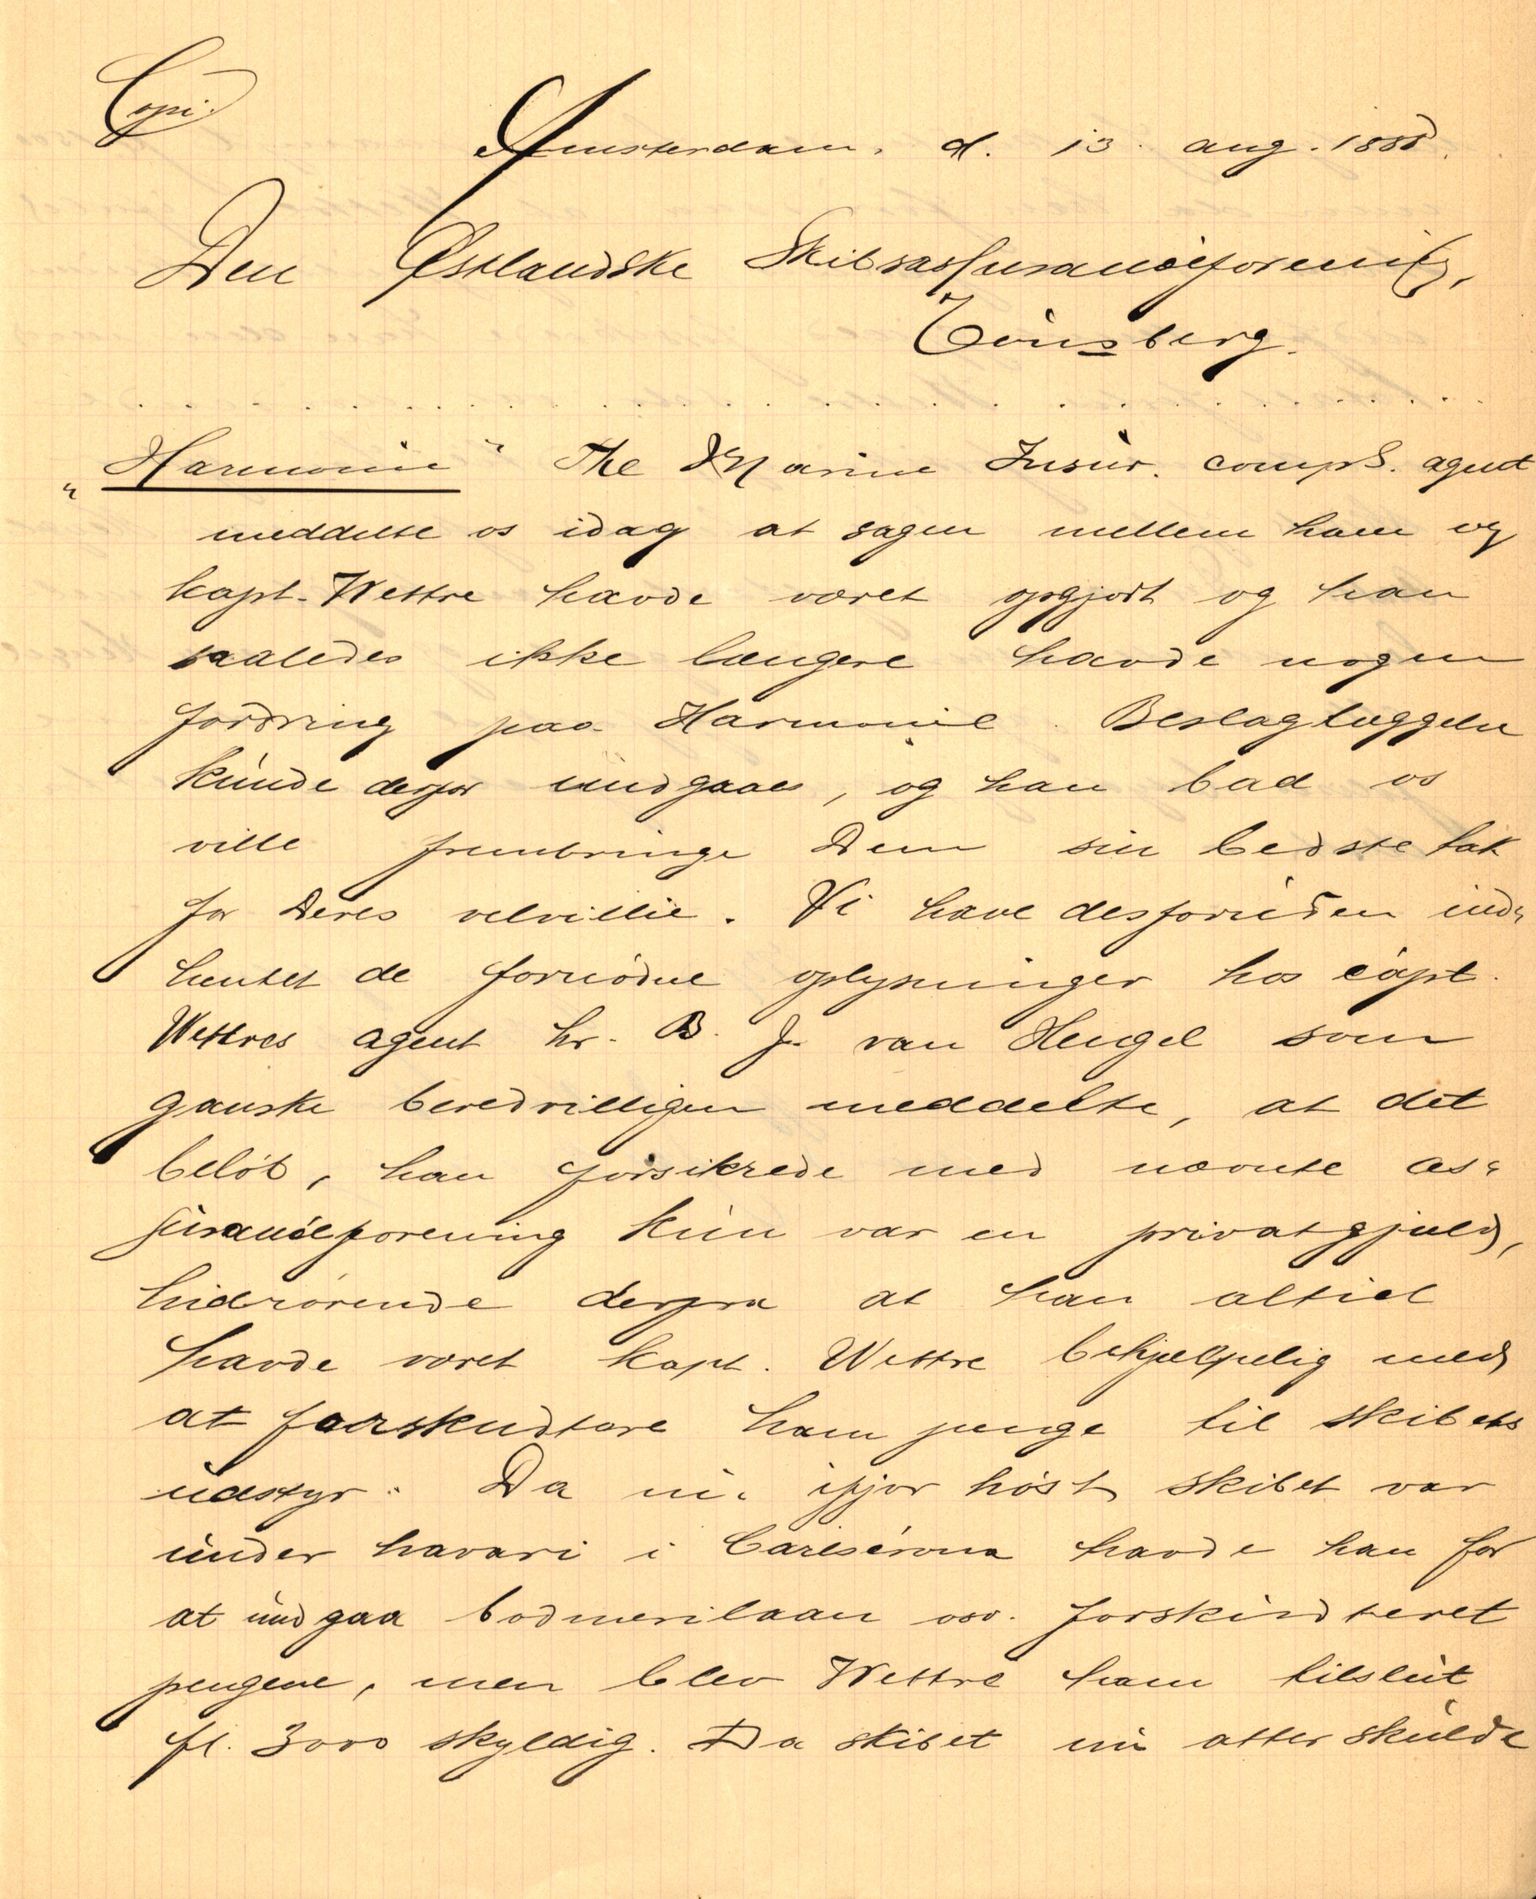 Copi.
Amsterdam, d. 13. aug. 1888.
Den Østlandske Skibsassuranceforening,
Tönsberg.
"Harmonie" The Marine Insur. comps. agent
meddelte os idag at sagen mellem ham og
kapt. Wettre havde været opgjort og han
saaledes ikke længere havde nogen
fordring paa Harmonie. Beslaglæggelse
kunde derfor undgaaes, og han bad os
ville frembringe Dem sin bedste tak
for Deres velvillie. Vi have desforuden ind-
hentet de fornödne oplysninger hos capt.
Wettres agent hr. B. J. van Hengel som
ganske beredvilligen meddelte, at det
belöb, han forsikrede med nævnte as-
suranceforening kun var en privatgjæld,
hidrörende derfra at han altid
havde været kapt. Wettre behjælpelig med
at forskudtere ham penge til skibets
udstyr. Da nu ifjor höst skibet var
under havari i Carlscrona havde han for
at undgaa bodmerilaan osv. forskudteret
pengene, men blev Wettre ham tilslut
fl. 3000 skyldig. Da skibet nu atter skulde